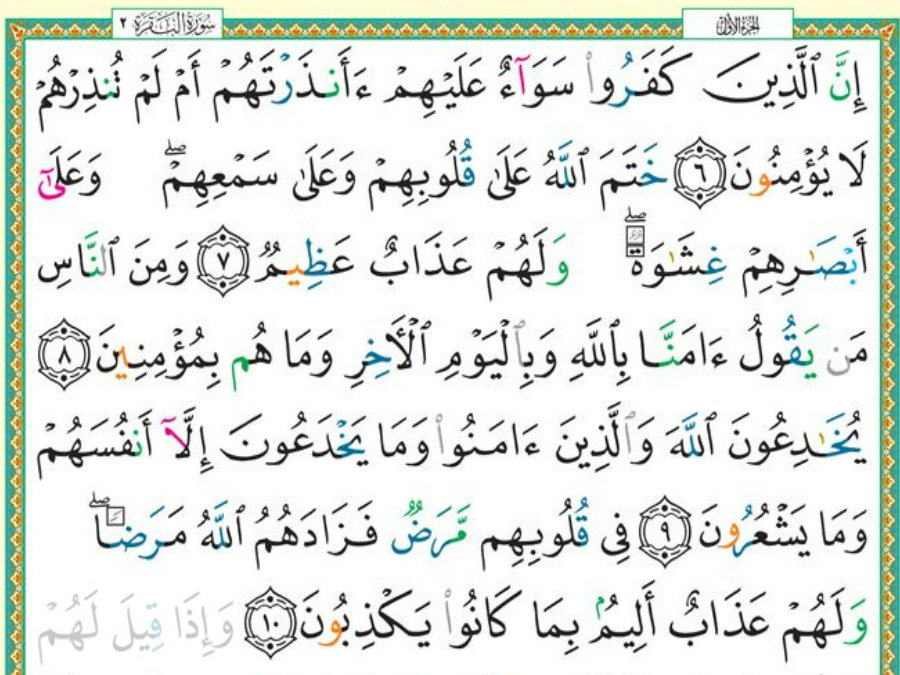 سُورَةُ الْبَقَرَةِ ٢
الجزء الأول
إِنَّ ٱلَّذِينَ كَفَرُوا۟ سَوَآءٌ عَلَيْهِمْ ءَأَنذَرْتَهُمْ أَمْ لَمْ تُنذِرْهُمْ
لَا يُؤْمِنُونَ ٦ خَتَمَ ٱللَّهُ عَلَىٰ قُلُوبِهِمْ وَعَلَىٰ سَمْعِهِمْ ۖ وَعَلَىٰٓ
أَبْصَـٰرِهِمْ غِشَـٰوَةٌ ۖ وَلَهُمْ عَذَابٌ عَظِيمٌ ٧ وَمِنَ ٱلنَّاسِ
مَن يَقُولُ ءَامَنَّا بِٱللَّهِ وَبِٱلْيَوْمِ ٱلْأَخِرِ وَمَا هُم بِمُؤْمِنِينَ ٨
يُخَـٰدِعُونَ ٱللَّهَ وَٱلَّذِينَ ءَامَنُوا۟ وَمَا يَخْدَعُونَ إِلَّآ أَنفُسَهُمْ
وَمَا يَشْعُرُونَ ٩ فِى قُلُوبِهِم مَّرَضٌ فَزَادَهُمُ ٱللَّهُ مَرَضًا ۖ
وَلَهُمْ عَذَابٌ أَلِيمٌۢ بِمَا كَانُوا۟ يَكْذِبُونَ ١٠ وَإِذَا قِيلَ لَهُمْ